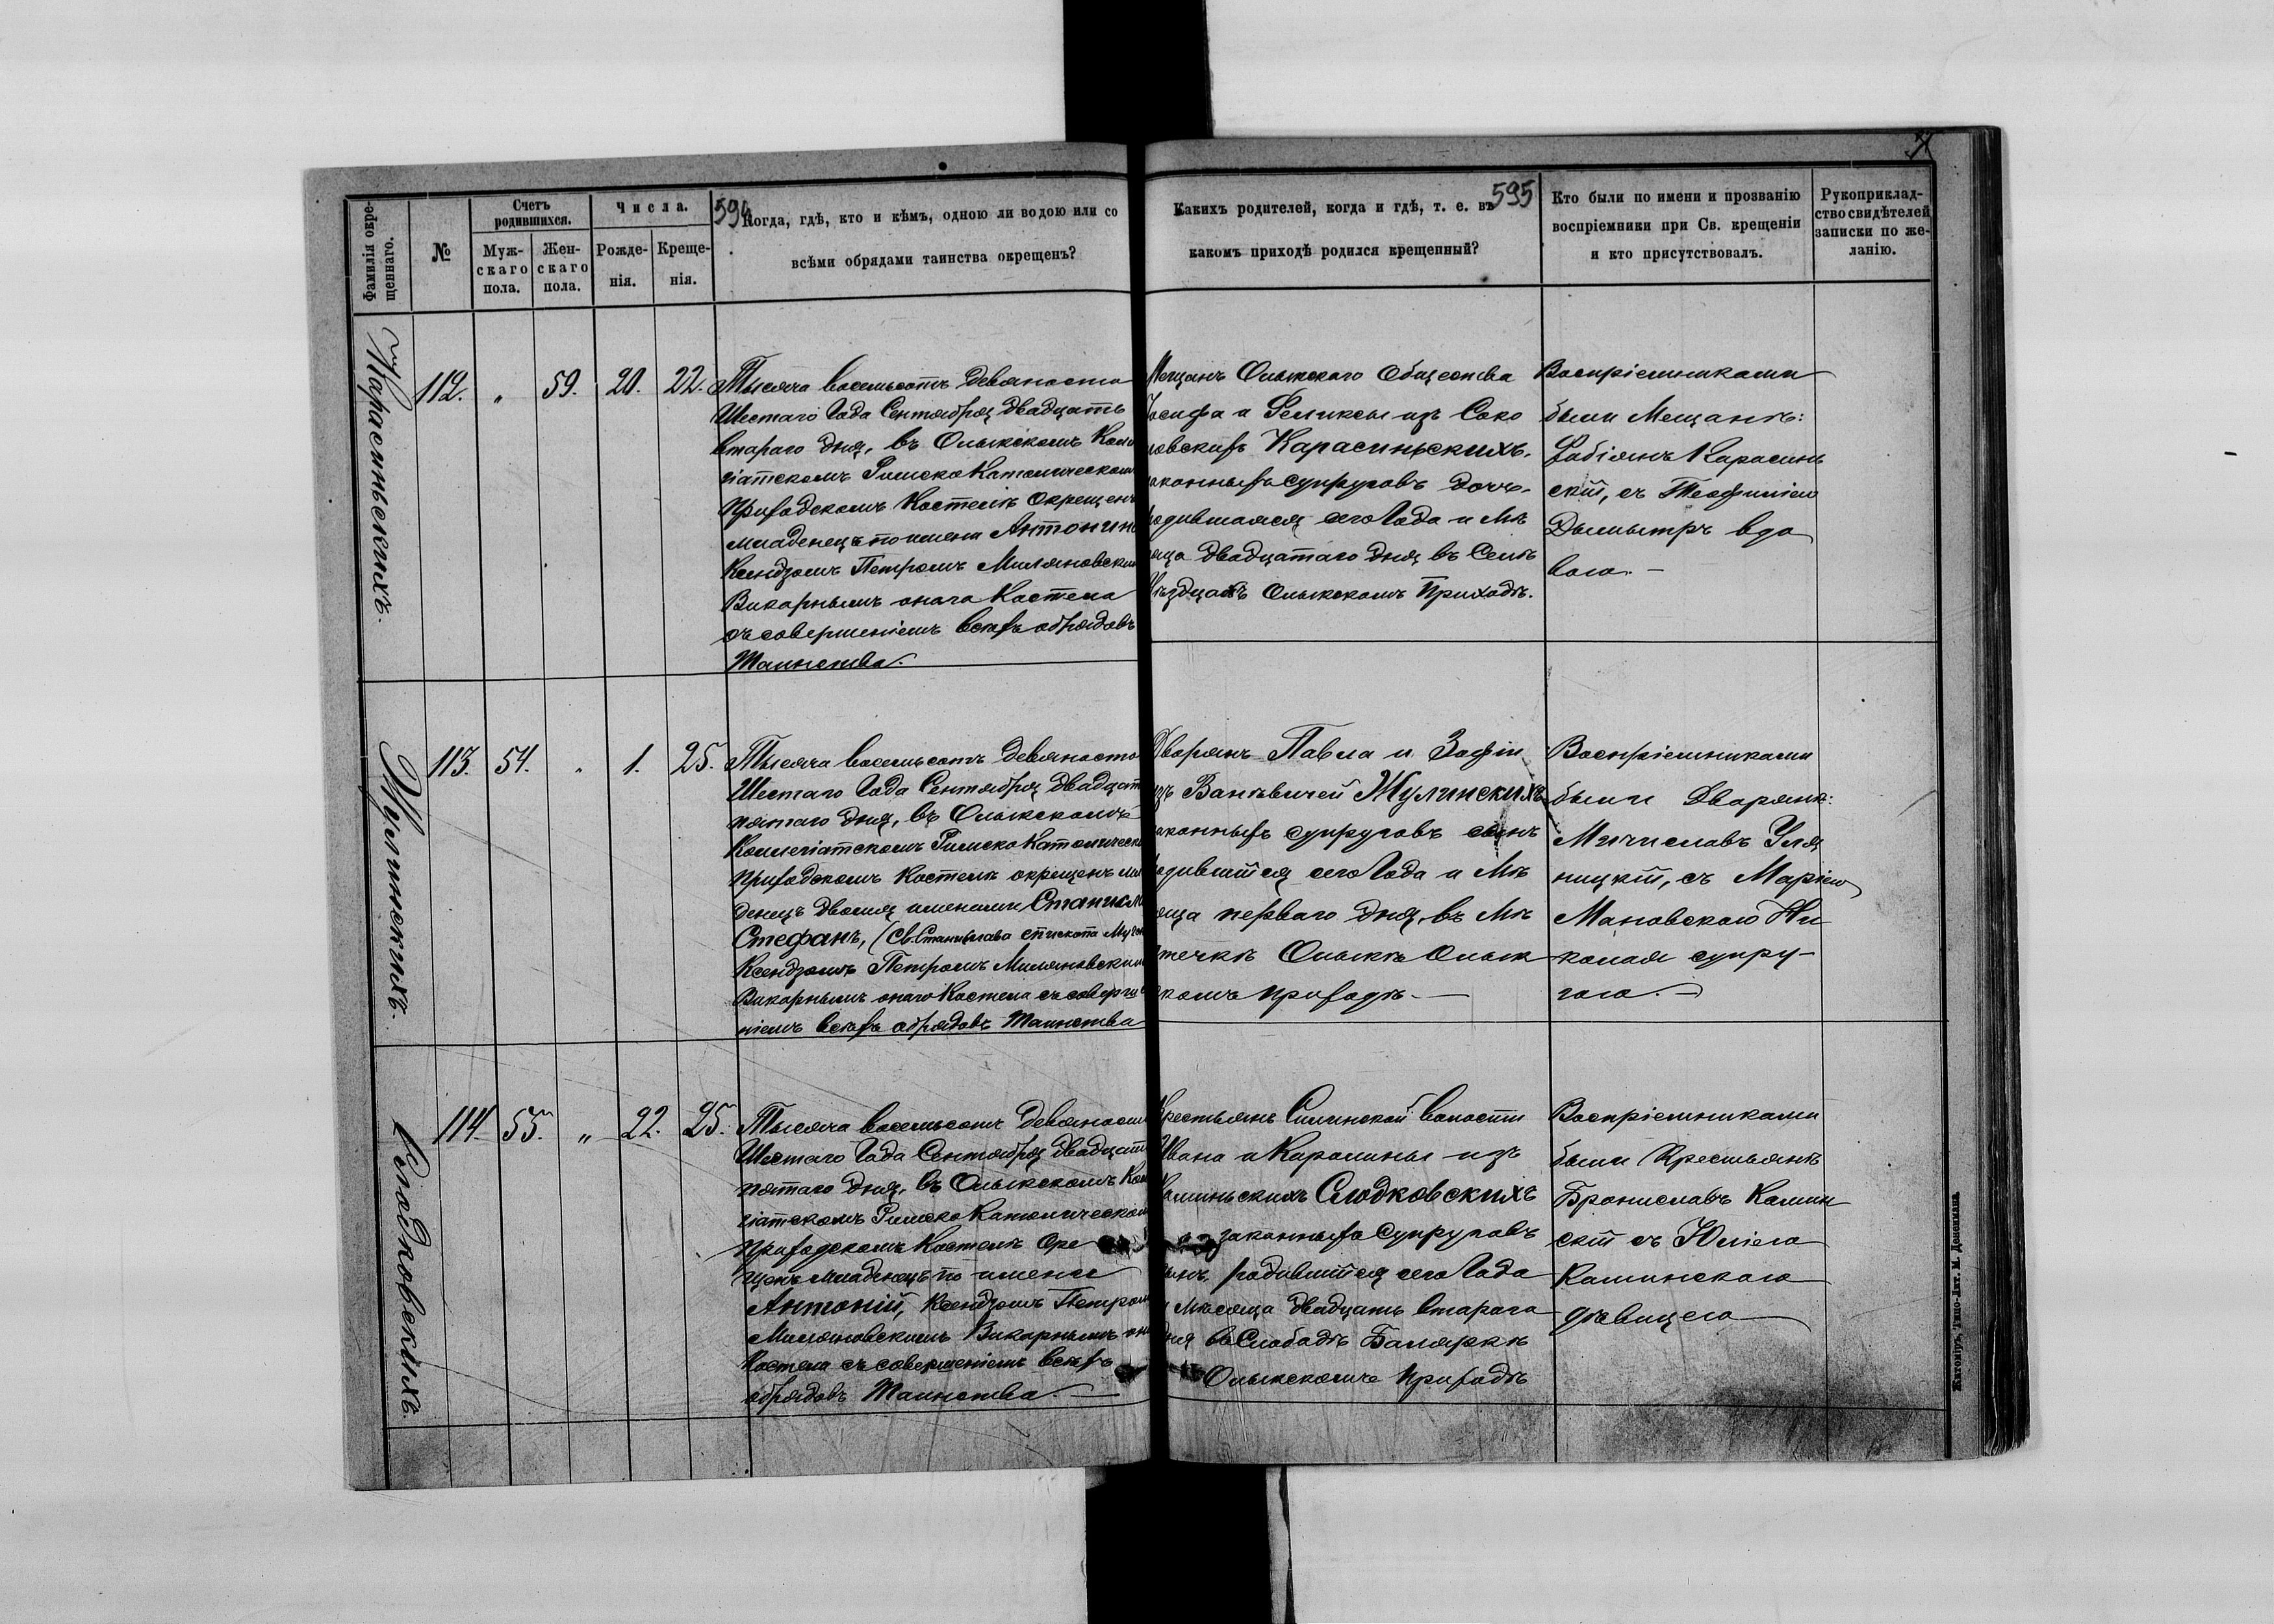 594
595
Фамилія окре-
щеннаго.
№
Счетъ
родившихся.
Муж-
скаго
пола.
Жен-
скаго
пола.
Числа.
Рожде-
нія.
Креще-
нія.
Когда, гдѣ, кто и кѣмъ, одною ли водою или со
всѣми обрядами таинства окрещенъ?
Какихъ родителей, когда и гдѣ, т. е. въ
какомъ приходѣ родился крещенный?
Кто были по имени и прозванію
воспріемники при Св. крещеніи
и кто присутствовалъ.
Рукоприклад-
ство свидѣтелей
записки по же-
ланію.
Карасиньскихъ.
112. „ 59. 20. 22.
Тысяча восемьсотъ девяносто
Шестаго Года Сентября двадцать
втараго дня, въ Олыкскомъ Колле
гіатскомъ Римско Католическомъ
Приходскомъ Костелѣ Окрещенъ
младенецъ по имени Антонина
Ксендзомъ Петромъ Миляновским
Викарнымъ онаго Костела
съ совершеніемъ всѣхъ обрядовъ
Таинства.
Мещанъ Олыкскаго Общества
Іосифа и Феликсы изъ Соко
ловскихъ Карасиньскихъ.
законныхъ супруговъ дочь.
родившаяся сего Года и Мѣ
сяца двадцатаго дня въ Селѣ
Олыкскомъ Приходѣ.
Воспріемниками
были Мещанъ:
Фабіянъ Карасинь
скій, съ Теофиліею
Дымытръ вдо
вою. —
Жулинскихъ.
113. 54. „ 1. 25.
Тысяча восемьсотъ девяносто
Шестаго Года Сентября двадцать
пятаго дня, въ Олыкскомъ
Коллегіатскомъ Римско Католическ
Приходскомъ Костелѣ окрещенъ мла
денецъ двомя именами Станисла
Стефанъ, (Св. Станислава епископа Муч
Ксендзомъ Петромъ Миляновским
Викарнымъ онаго Костела съ соверше
ніемъ всѣхъ обрядовъ Таинства
Дворянъ Павла и Зофіи
изъ Ваньвичей Жулинскихъ
законныхъ супруговъ сынъ
родившійся сего Года и Мѣ
сяца перваго дня, въ Мѣ
стечкѣ Олыкѣ Олык
скомъ приходѣ. —
Воспріемниками
были Дворянъ:
Мичиславъ Уля
ницкій, съ Маріею
Мановскою Ни
колая супру-
гою. —
Слодковскихъ.
114. 55. „ 22. 25.
Тысяча восемьсотъ девяносто
Шестаго Года Сентября двадцать
пятаго дня, въ Олыкскомъ Кол
гіатскомъ Римско Католическом
Приходскомъ Костелѣ Окре
щенъ младенецъ по имени
Антоній, Ксендзомъ Петром
Миляновскимъ Викарнымъ он
Костела съ совершеніемъ всѣхъ
обрядовъ Таинства. —
Крестьянъ Силинской волости
Ивана и Каролины изъ
Каминьскихъ Слодковскихъ
законныхъ Супруговъ
сынъ, родившійся сего Года
и Мѣсяца двадцать втораго
дня въ Слободѣ Баляркѣ
Олыкскомъ Приходѣ
Воспріемниками
были Крестьянъ
Брониславъ Камин
скій съ Юліею
Каминскою
дѣвицею
Житоміръ, Типо-Лит. М. Дененмана.